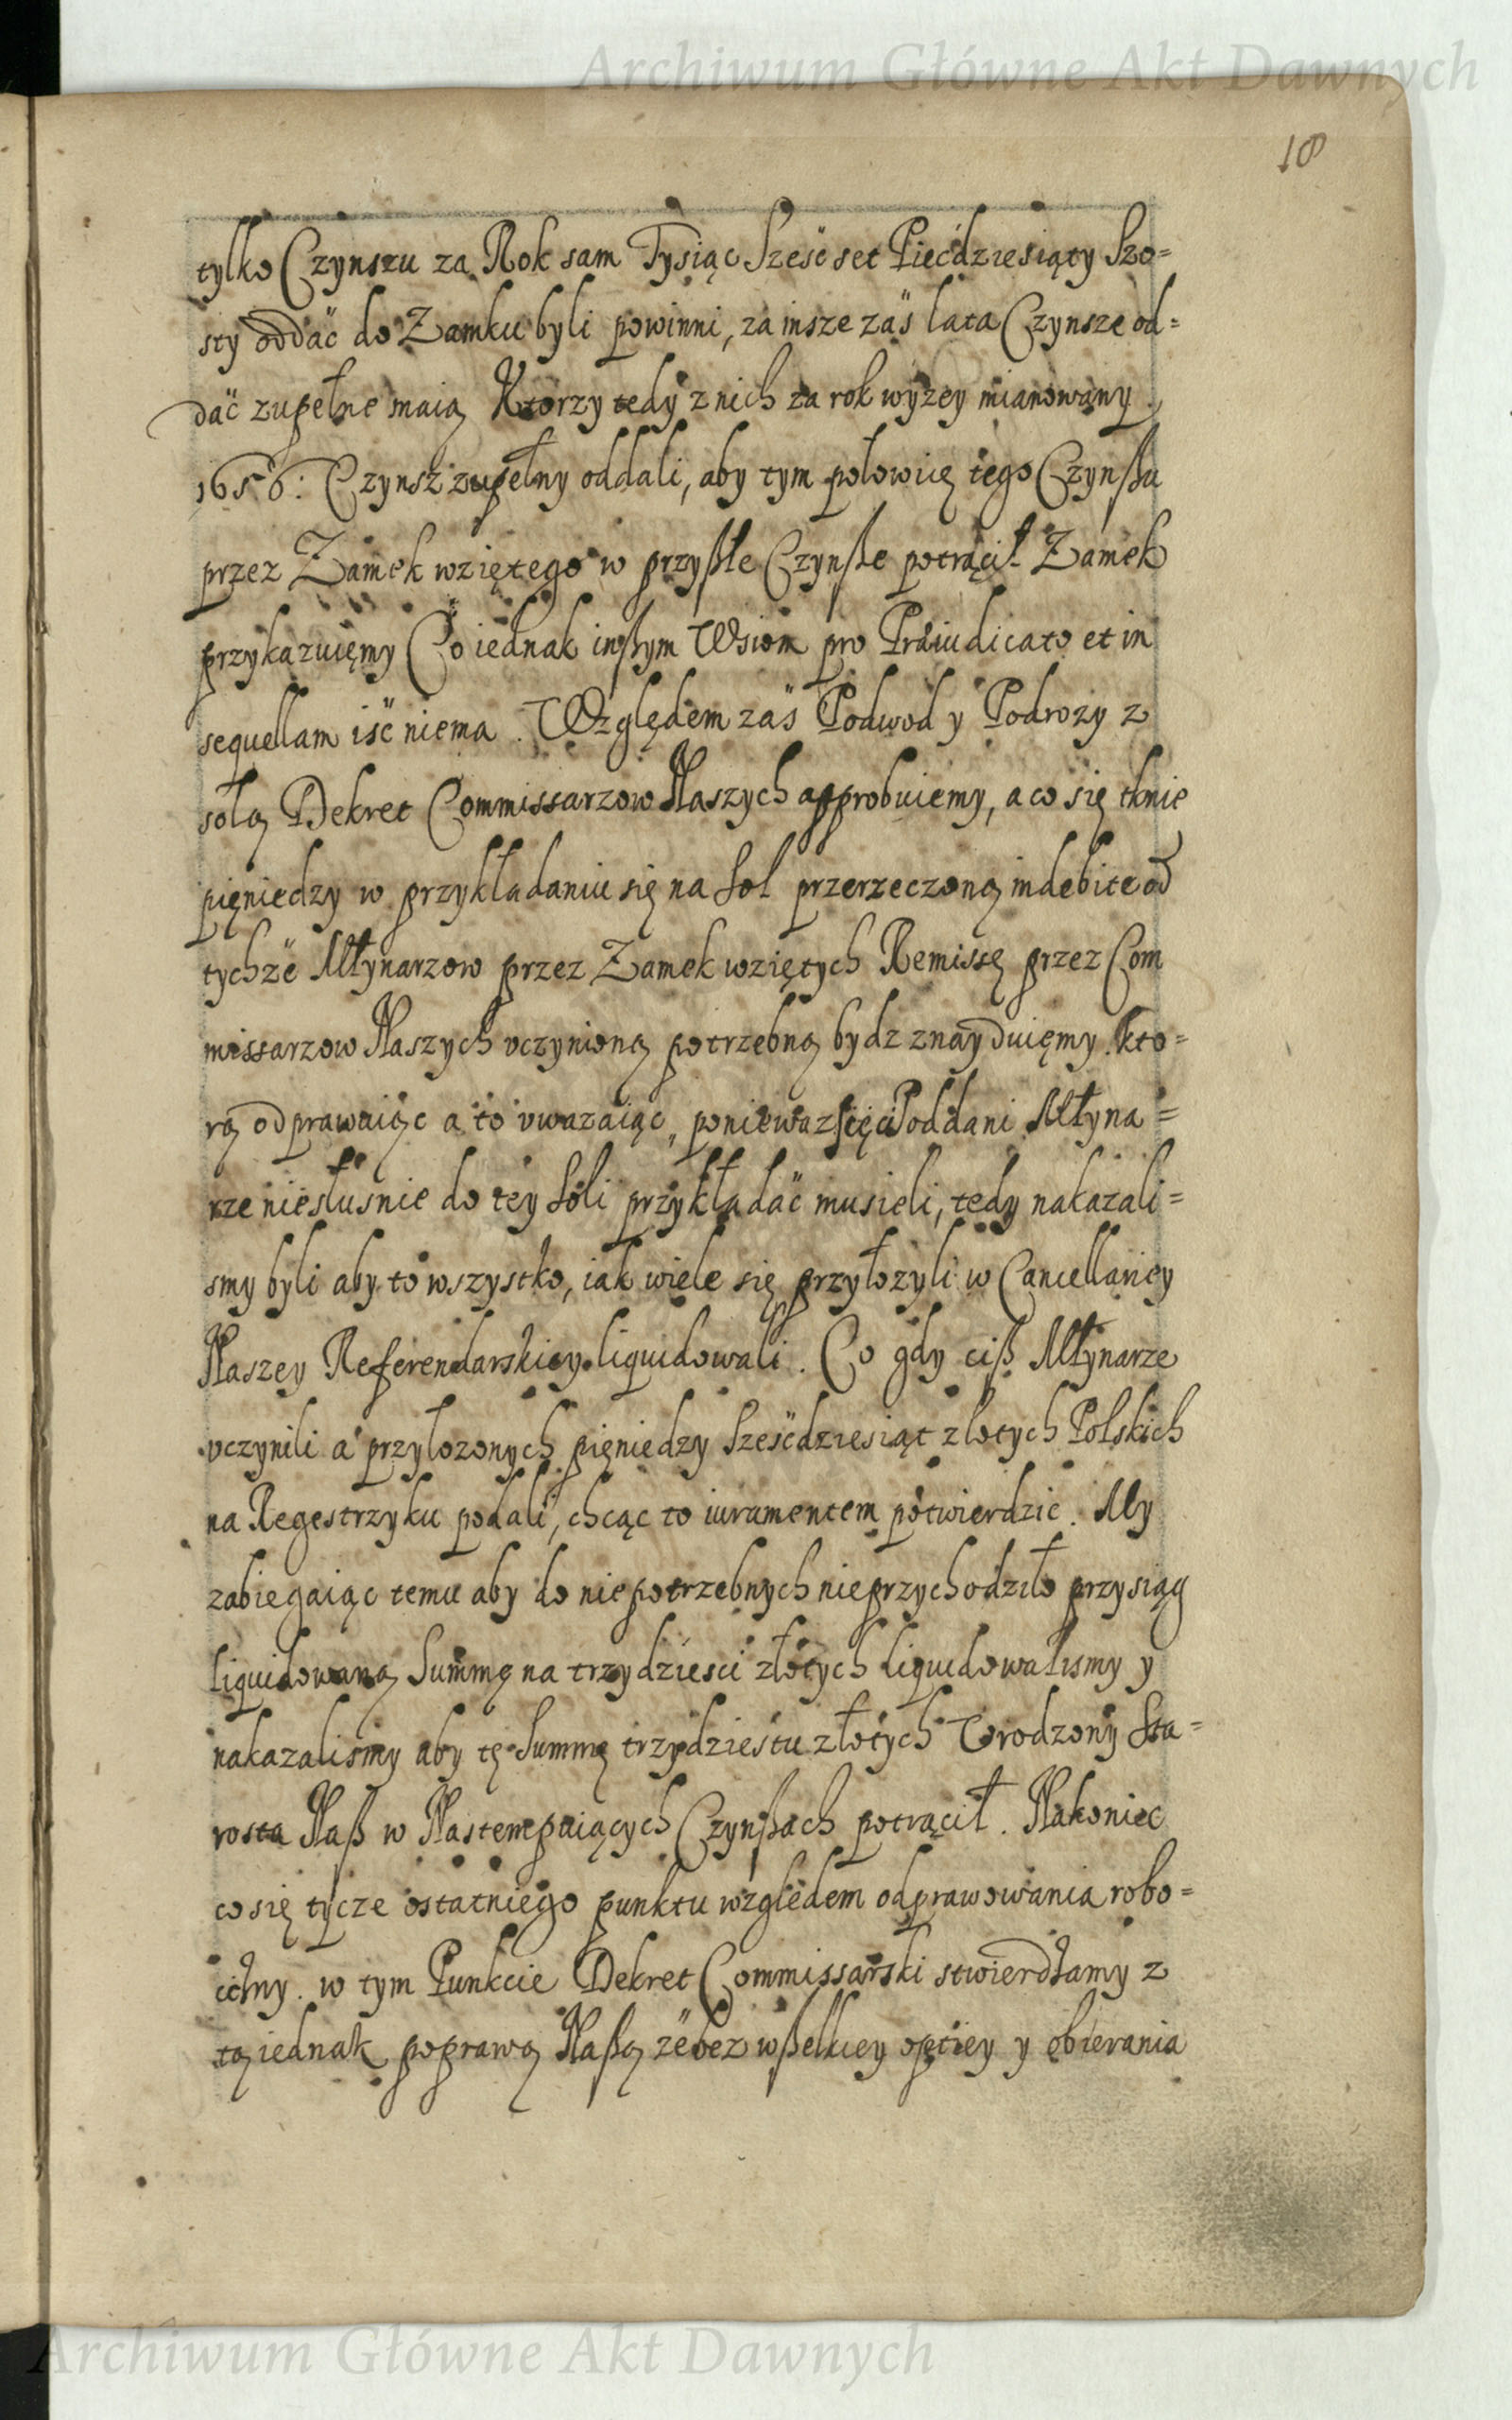 Archiwum Główne Akt Dawnych
18
tylko Czynszu za Rok sam Tysiąc Szesc set Piecdziesiąty Szo=
sty oddać do Zamku byli powinni, za insze zaś lata Czynsze od=
dać zupełne maią Ktorzy tedy z nich za rok wyzey mianowany
1656: Czynsz zupełny oddali, aby tym połowicę tego Czynßu
przez Zamek wziętego w przyßłe Czynße potrącił Zamek
przykazuięmy Co iednak inßym Wsiom pro Præiudicato et in
sequellam iść niema. Względem zaś Podwod y Podrozy z
solą Dekret Commissarzow Naszych approbuiemy, a co się tknie
pięniedzy w przykładaniu się na Sol przerzeczoną indebite od
tychże Młynarzow przez Zamek wziętych Remissę przez Com
missarzow Naszych vczynioną potrzebną bydz znayduięmy. kto=
rą odprawuiąc a to vwazaiąc, poniewaz Poddani Młyna=
rze niesłusnie do tey Soli przykładać musieli, tedy nakazali=
smy byli aby to wszystko, iak wiele się przyłozyli w Cancellariey
Naszey Referendarskiey liquidowali. Co gdy ciß Młynarze
vczynili a przylozonych pięniedzy Sześćdziesiąt zlotych Polskich
na Regestrzyku podali, chcąc to iuramentem potwierdzic. My
zabiegaiąc temu aby do niepotrzebnych nieprzychodziło przysiąg
liquidowaną Summę na trzydziesci złotych liquidowalismy y
nakazalismy aby tę Summę trzydziestu złotych Vrodzony Sta=
rosta Naß w Nastempuiących Czynßach potrącił. Nakoniec
co się tycze ostatniego punktu względem odprawowania robo=
cizny. w tym Punkcie Dekret Commissarski stwierdzamy z
tą iednak poprawą Naßą że bez wßelkiey optiey y obierania
Archiwum Główne Akt Dawnych